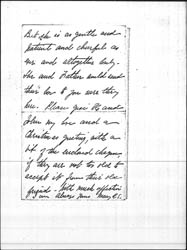 But she is as gentle and
natural and cheerful as
ever and altogether lovely.
She and Father would send
their love to you were they
here. Please give Mr and
John my love and a
Christmas greeting, with a
bit of the enclosed
if they are not too old to
accept it from their old
friend. With much affection
I am always yours Mary C.